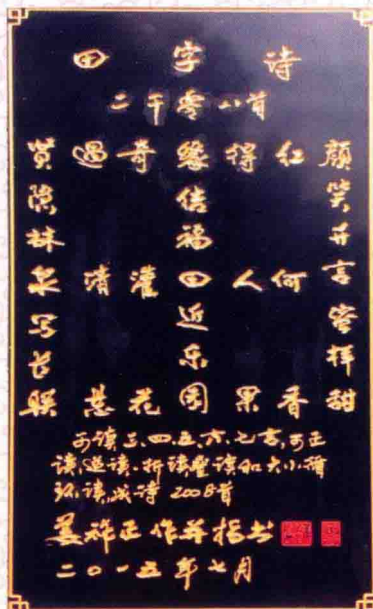 田字诗
二千零八首
赏 遇 奇 缘 得 红 颜
隐 信 笑
林 福 开
泉 清 灌 田 人 何 言
写 近 容
长 乐 样
联 慧 花 园 果 香 甜
可读三、四、五、六、七言,可正
读、逆读、折读、竖读和大小循
环读,成诗2008首
姜祥正作并指书
二〇一五年七月